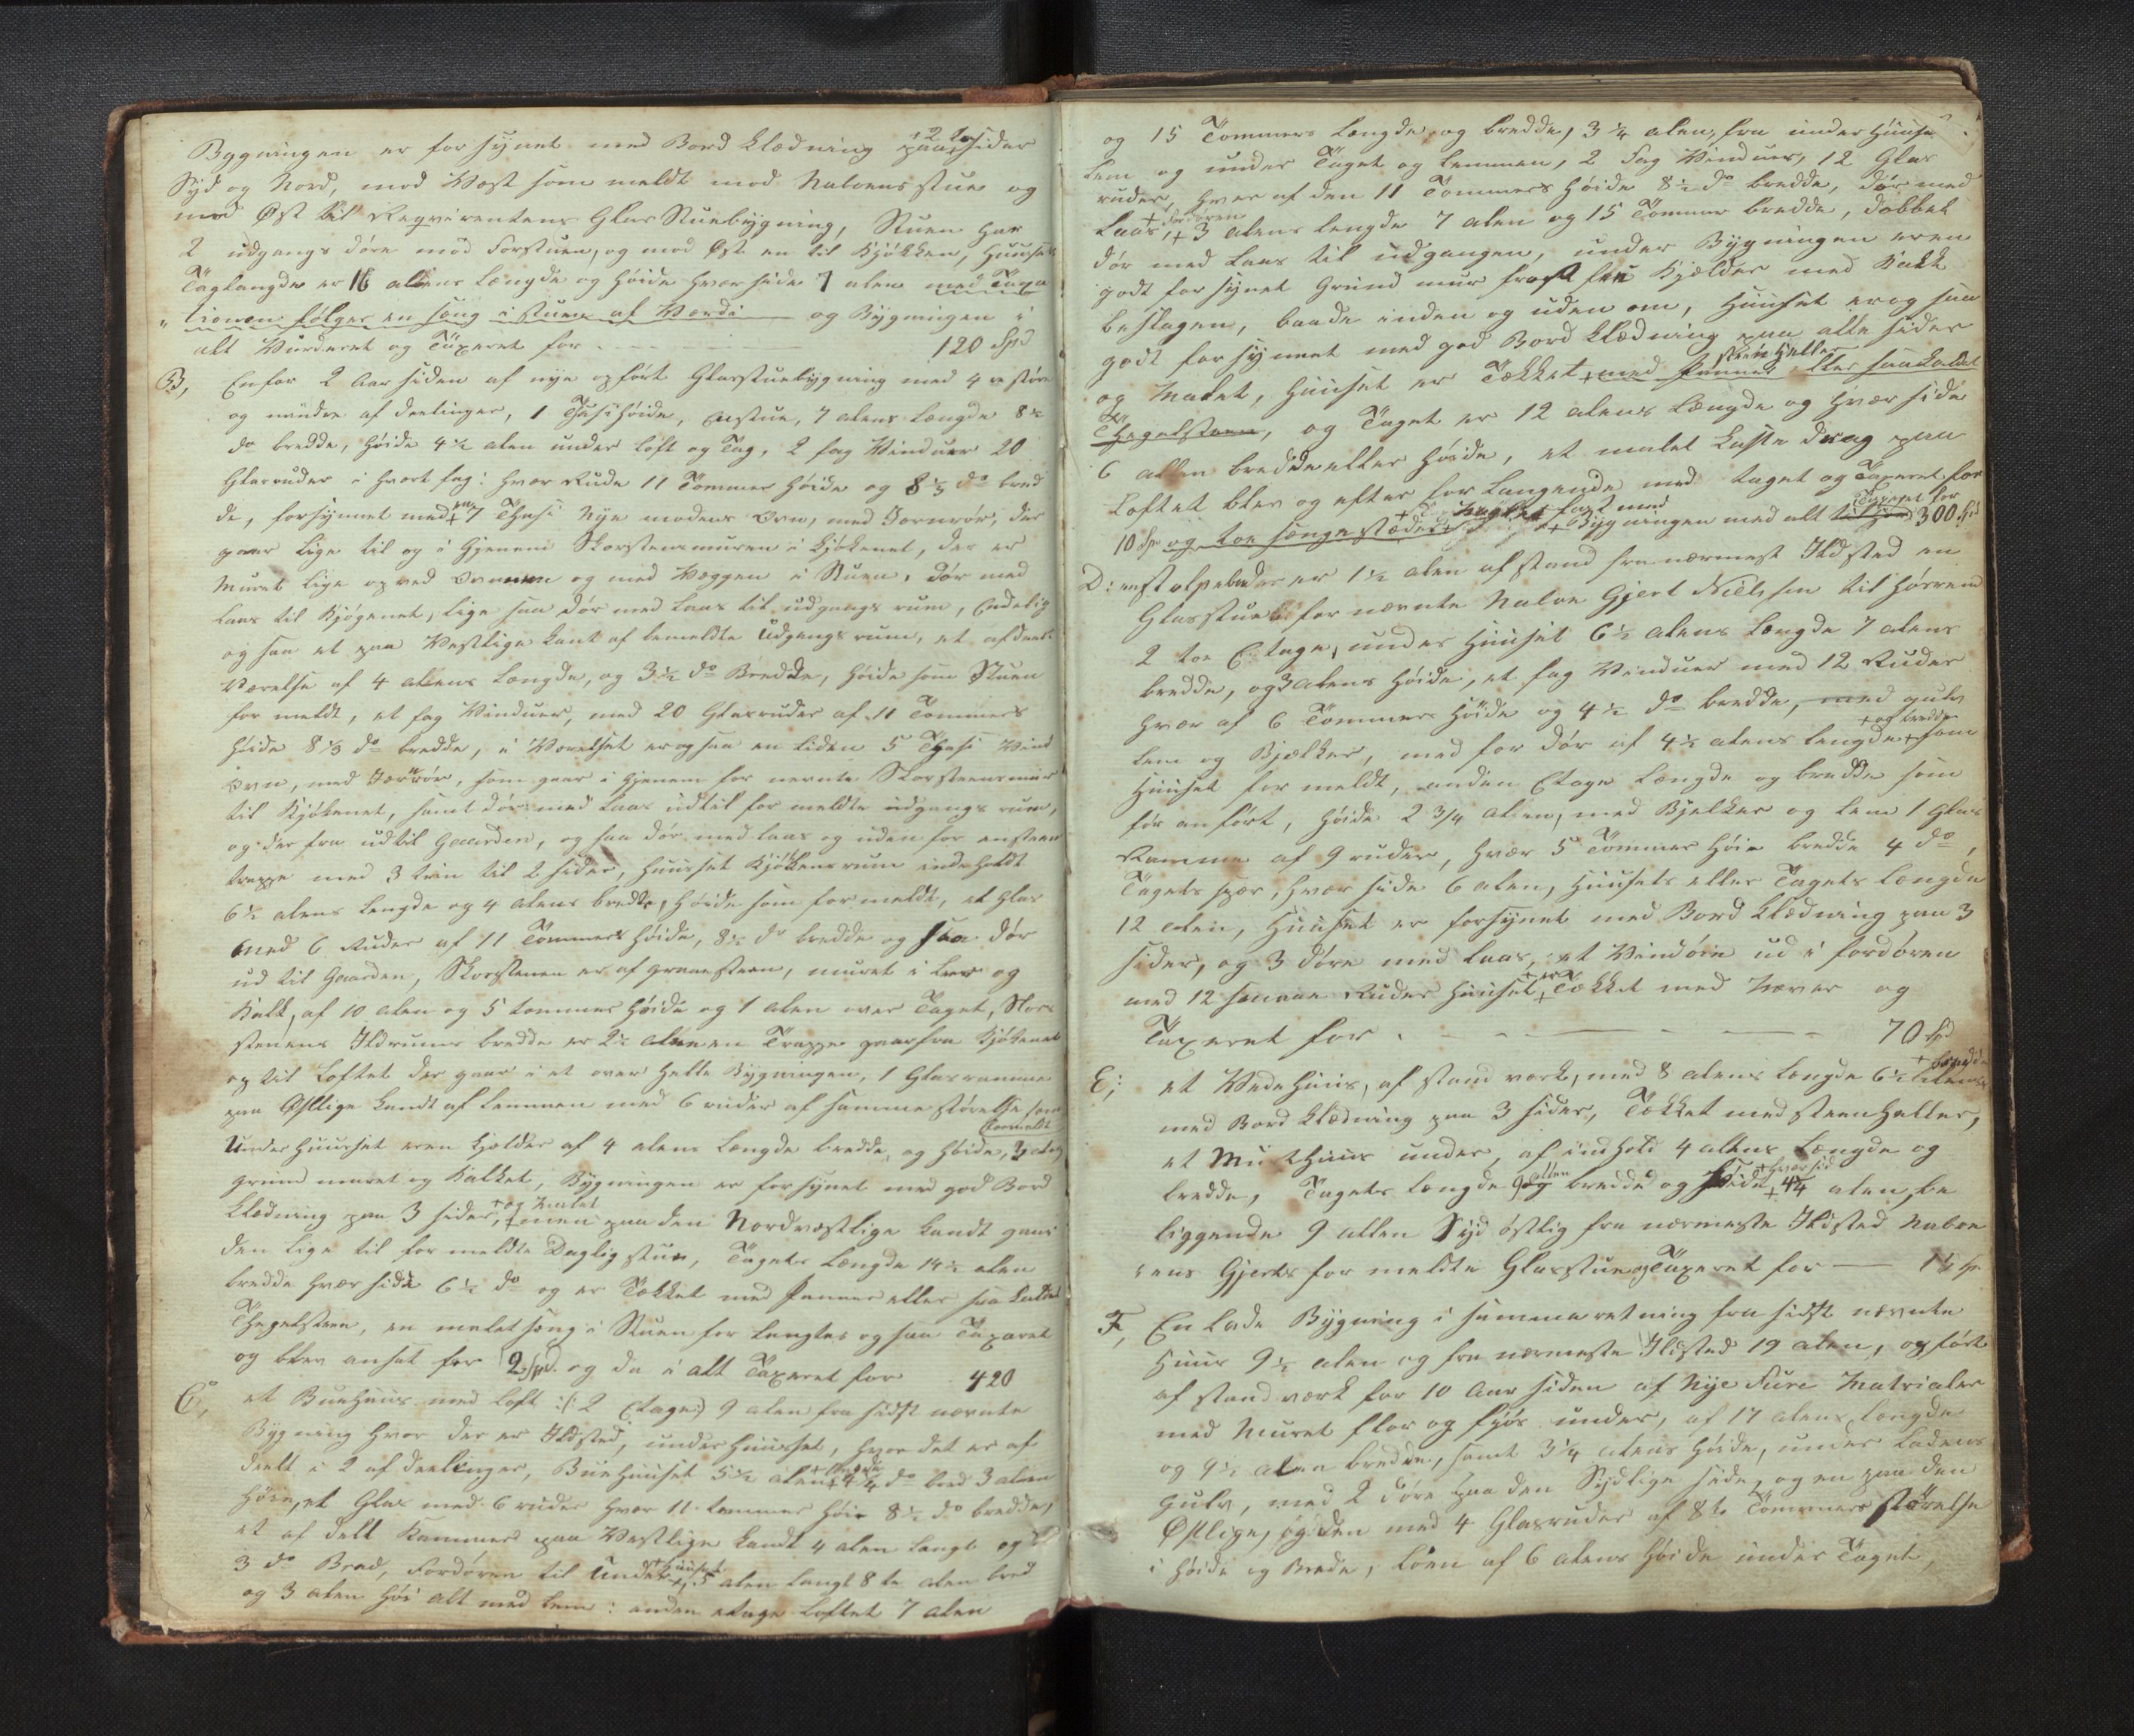 Bygningen er forsynet med Bord Klædning paa + 2 de sider
Syd og Nord, mod Vest som meldt mod Naboens stue og
mod Øst til Reqvirentens Glas Stuebygning, Stuen har
2 udgangs döre mod Forstuen, og mod Øst en til Kjökken, Huusets
Taglængde er 16 alens Længde og Höide hver side 7 alen med Taxa
tionen fölger en seng i stuen af Værdi og Bygningen i
alt Vurderet og Taxeret for 120 Spd
B, En for 2 Aar siden af nye opfört Glasstuebygning med 4re större
og mindre afdeelinger, 1 Etasi höide, enstue, 7 alens Længde 8 ½
do bredde, höide 4 ½ alen under loft og Tag, 2 fag Vinduer 20
Glasruder i hvert fag: hver Rude 11 Tommer höide og 8 ½ do bred
de, forsynnet med + en 7 Etasi Nye modens Ovn, med Jernrör, der
gaaer lige til og i Gjenem Skorsteensmuren i Kjökenet, der er
Muret lige op ved Ovnen og med Væggen i Stuen, dör med
Laas til Kjögenet, lige saa dör med Laas til udgangs rum, Endelig
ogsaa et paa Vestlige kant af bemeldte Udgangs rum, et afdeelt
Værelse af 4 alens Længde, og 3 ½ do Bredde, höide som Stuen
for meldt, et fag Vinduer, med 20 Glasruder af 11 Tommers
höide 8 ½ do bredde, i Værelset er ogsaa en liden 5 Etasi Vind
Ovn, med Jærnrör, som gaar i gjenem for nevnte Skorsteensmur
til Kjökenet, samt dör med Laas udtil for meldte udgangs rum,
og der fra udtil Gaarden, ogsaa dör med Laas og uden for en steen
trappe med 3 trin til 2 sider, Huuset Kjökkensrum inde holdt
6 ½ alens Lengde og 4 alens bredde, höide som for meldt, et Glas
med 6 Ruder af 11 Tommers höide, 8 ½ do bredde og saa dör
ud til Gaarden, Skorstenen er af graasteen, muret i Leer og
Kalk, af 10 alen og 5 tommer höide og 1 alen over Taget, Skor
stenens Ildrums bredde er 2 ½ alen en Trappe gaar fra Kjökenet
op til Loftet der gaar i et over hele Bygningen, 1 Glas ramme
paa Østlige Kandt af Lemmen med 6 ruder af samme störelse som formeldt
Under Huuset er en Kjelder af 4 alens Længde bredde, og höide, 3 alen
grund muret og Kalket, Bygningen er forsynet med god Bord
klædning paa 3 sider, + og Malet men paa den Nordvestlige Kandt gaar
den lige til for meldte Daglig stue, Tagets Længde 14 ½ alen
bredde hver side 6 ½ do og er Tækket med Panner eller saa kaldet
Thegelsteen, en malet seng i Stuen for langtes ogsaa Taxeret
og blev anset for 2 Spd. og da i alt Taxeret for 420
C, et Buehuus med Loft :/: 2 Etage:) 9 alen fra sidst nevnte
Bygning hvor der er Ildsted, under huuset, hvor det er af
deelt i 2 afdeelinger, Buehuuset 5 ½ alen + Længde 4 ¼ do bred 3 alen
höie, et Glas med 6 ruder hver 11 tommer höie 8 ½ do bredde,
et afdelt Kammer paa Vestlige Kandt 4 alen Langt og
3 do Bred, Fordören til Under + huuset 5 alen langt 8te alen bred
og 3 alen höi alt med Lem: anden etage Loftet 7 alen
og 15 Tommers Længde og bredde, 3 ¼ alen, fra under Huuse
Lem og under Taget og Lemmen, 2 fag Vinduer, 12 Glas
ruder, hver af den 11 Tommers höide 8 ½ do bredde, dör med
Laas, + Fordören 3 alens lengde 7 alen og 15 Tommer bredde, dobbel
dör med Laas til udgangen, under Bygningen er en
godt forsynet Grund mur frost frie Kjelder med Kalk
beslagen, baade inden og uden om, Huuset er ogsaa
godt forsynnet med god Bord klædning paa alle sider
og Malet, Huuset er Tækket + med Panner steen heller eller saakaldet
Thegelsteen, og Taget er 12 alens Længde og hver side
6 allen bredde eller höide, et malet Kaste drag paa
Loftet blev og efter for langende med taget og Taxeret for
10 Spd og toe senge stæder + fast med Bygningen med alt Taxeret for 300 Spd
D: en Stolpeboder er 1 ½ alen af stand fra nærmest Ildsted en
Glasstue for nævnte Naboe Gjert Nielssen tilhörende
2 toe Etage, under Huuset 6 ½ alens Længde 7 alens
bredde, og 3 alens höide, et fag Vinduer med 12 Ruder
hver af 6 Tommer höide og 4 ½ do bredde, med gulv
Lem og Bjelker, med for dör af 4 ½ alens lengde + og bredde som
Huuset for meldt, anden Etage Længde og bredde som
för anfört, höide 2 3/4 alen, med Bjelker og Lem 1 Glas
Ramme af 9 ruder, hver 5 Tommer höie bredde 4 do,
Tagets spær, hver side 6 alen, Huusets eller Tagets Længde
12 alen, Huuset er forsynet med Bord Klædning paa 3
sider, og 3 döre med Laas, et Vindöie ud i fordören
med 12 smaae Ruder Huuset + er Tækket med Næver og
Taxeret for 70 Spd
E; et Vedehuus, af stand værk, med 8 alens Længde 6 ½ alens + bredde
med Bord klædning paa 3 sider, Tækket med steen heller,
et Mur Huus under, af indhold 4 alens Længde og
bredde, Tagets Længde 9 allen og bredde og höide + hver side 4 ¼ alen, be
liggende 9 allen Sydöstlig fra nærmeste Ildsted Naboe
rens Gjerts for meldte Glasstue og Taxeret for
F, En Lade Bygning i samme retning fra sidst nævnte
Huus 9 ½ alen og fra nærmeste Ildsted 19 alen, opfört
af stand værk for 10 Aar siden af Nye Fure Matrialer
med Muret flor og fjös under, af 17 alens Længde
og 9 ½ alen bredde, samt 3 ¼ alens höide, under Ladens
Gulv, med 2 döre paa den Sydlige side, og en paa den
Østlige, og den med 4 Glasruder af 8te Tommers störelse
i höide og Brede, Loen af 6 alens höide under Taget,